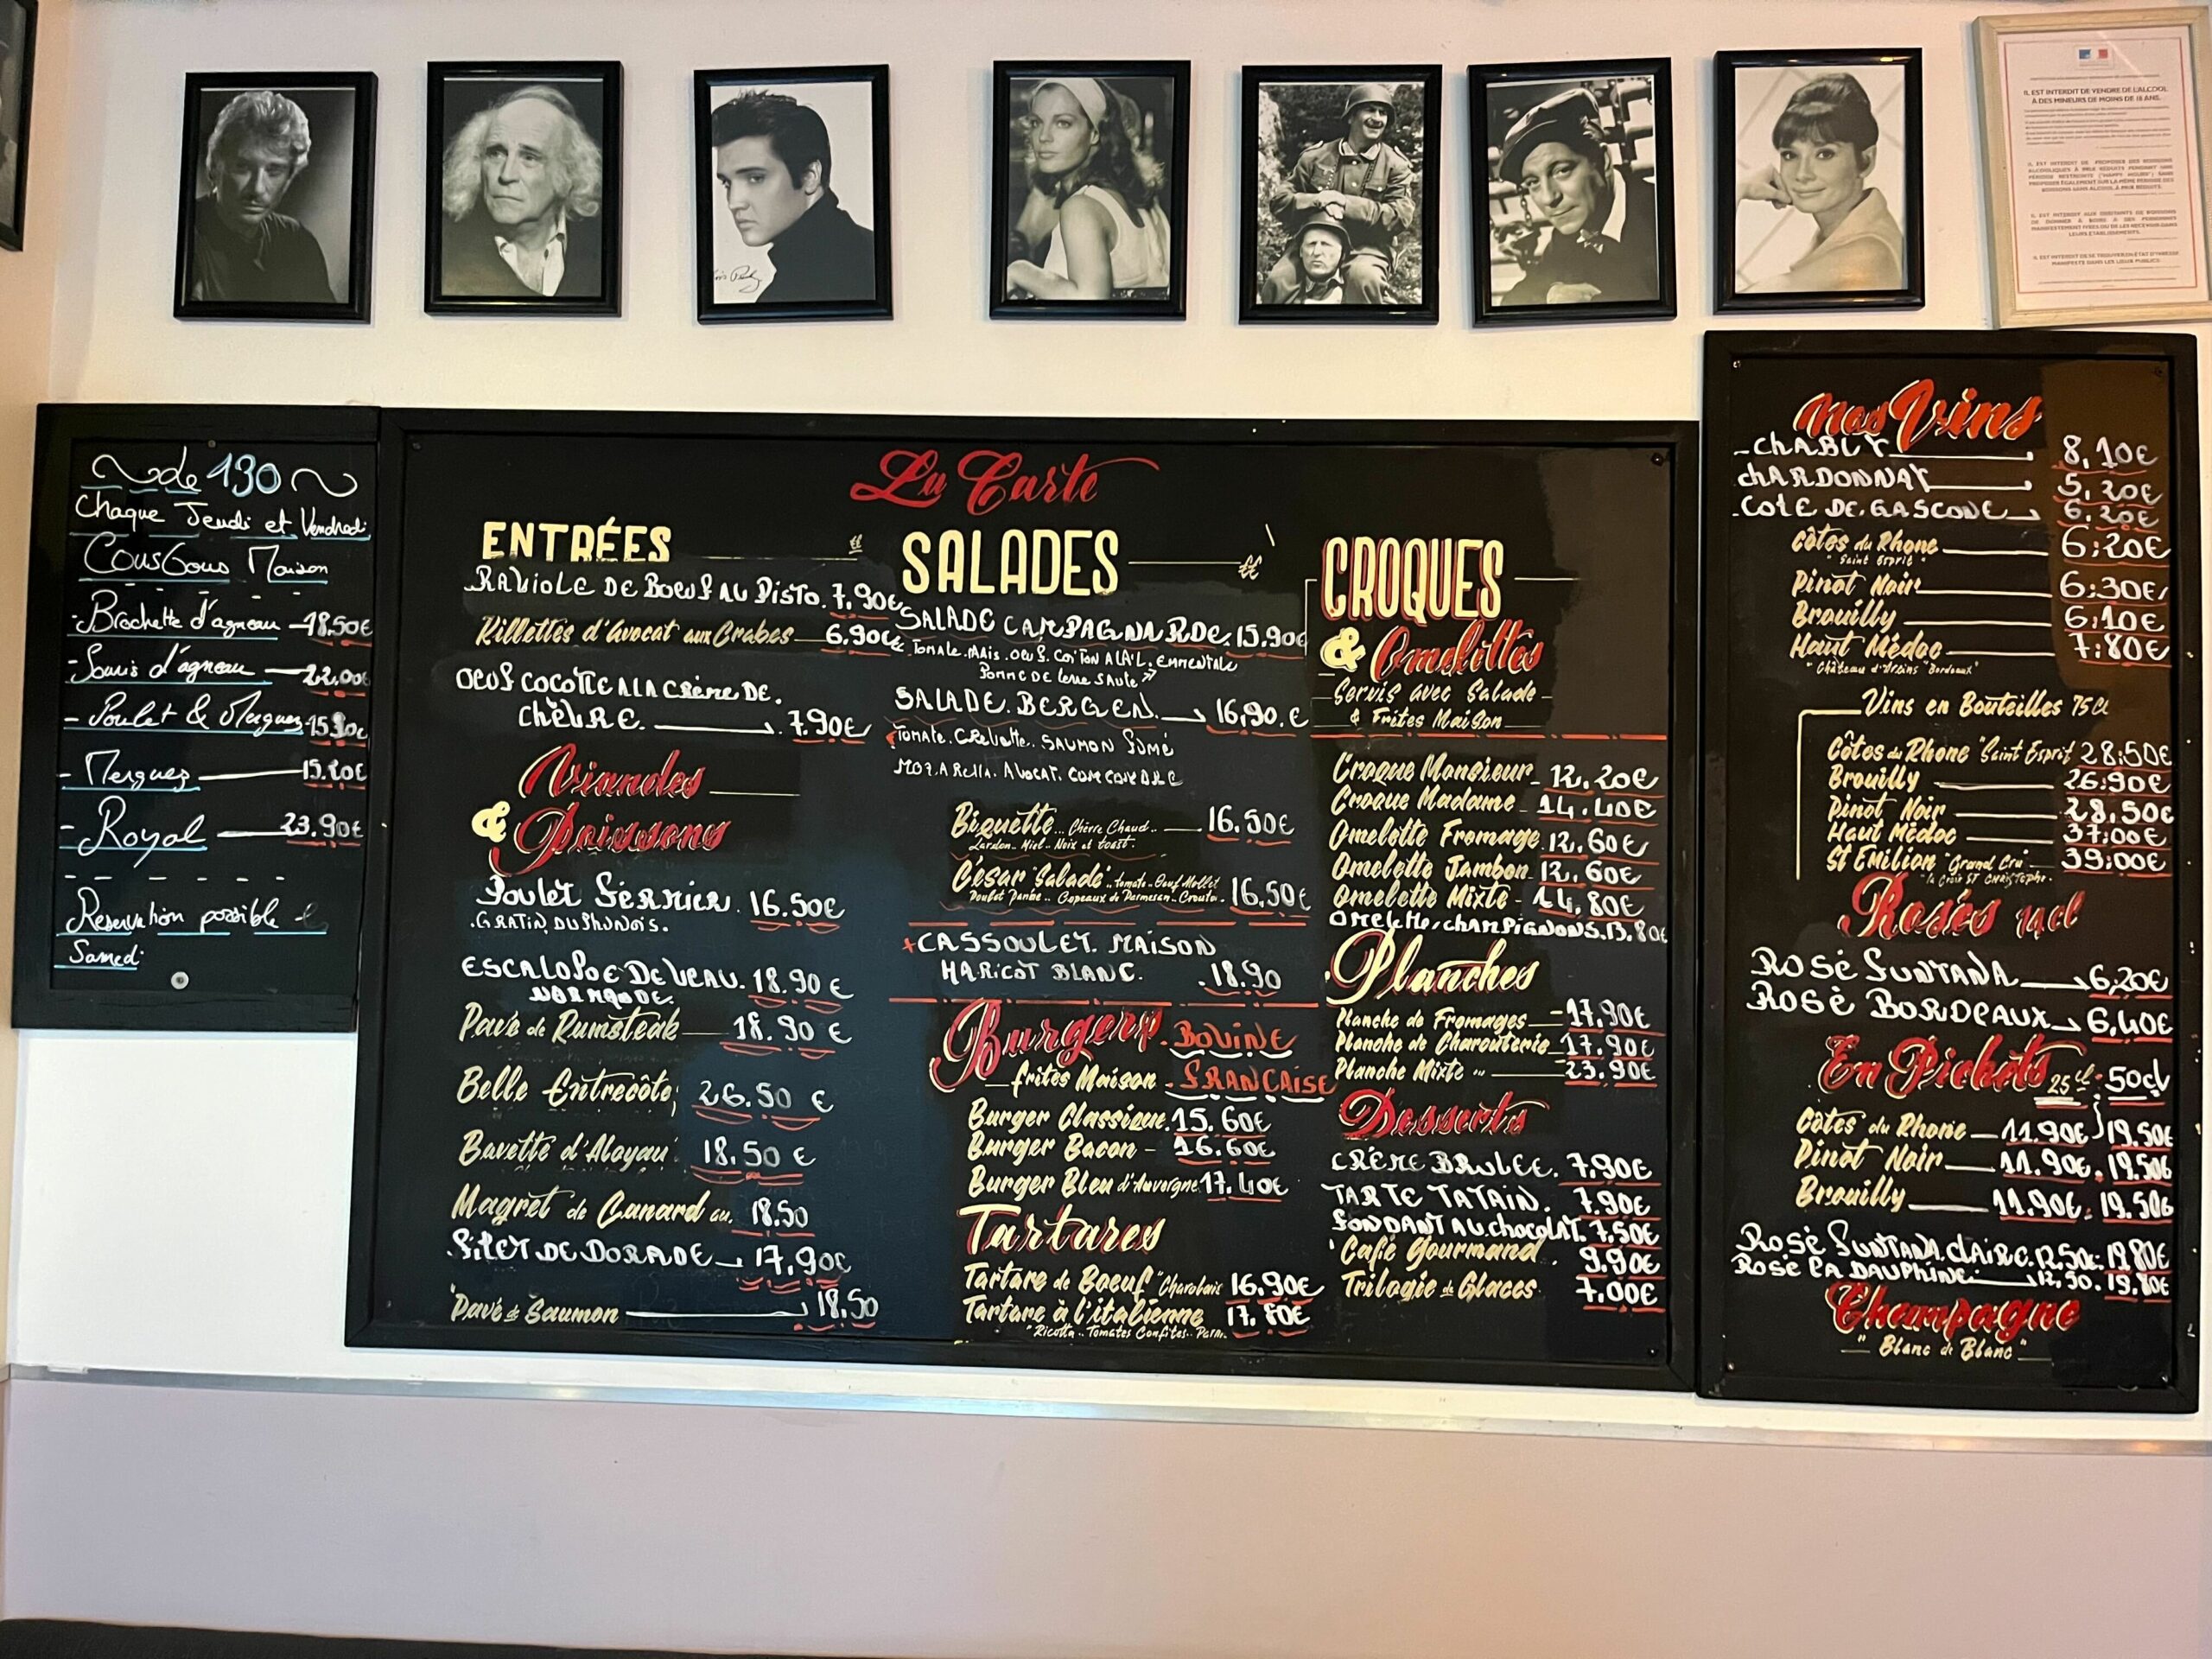 IL EST INTERDIT DE VENDRE DE L'ALCOOL
À DES MINEURS DE MOINS DE 18 ANS.
IL EST INTERDIT DE PROPOSER DES BOISSONS
ALCOOLIQUES À PRIX RÉDUITS PENDANT UNE
PÉRIODE RESTREINTE ("HAPPY HOURS") SANS
PROPOSER ÉGALEMENT SUR LA MÊME PÉRIODE DES
BOISSONS SANS ALCOOL À PRIX RÉDUITS.
IL EST INTERDIT AUX DÉBITANTS DE BOISSONS
DE DONNER À BOIRE À DES PERSONNES
MANIFESTEMENT IVRES OU DE LES RECEVOIR DANS
LEURS ÉTABLISSEMENTS.
IL EST INTERDIT DE SE TROUVER EN ÉTAT D'IVRESSE
MANIFESTE DANS LES LIEUX PUBLICS.
de 130
Chaque Jeudi et Vendredi
Couscous Maison
- Brochette d'agneau 18.50€
- Souris d'agneau 22,00€
- Poulet & Merguez
- Merguez 15.20€
- Royal 23.90€
Reservation possible le
Samedi
La Carte
ENTRÉES
RAVIOLE DE BOEUF AU PISTO. 7,90€
Rillettes d'Avocat aux Crabes 6.90€
OEUF COCOTTE A LA CRÈME DE.
CHÈVRE. 7.90€
Viandes
& Poissons
Poulet FERMIER. 16.50€
.GRATIN DU
ESCALOPE DE VEAU. 18.90€
NORMANDE.
Pavé de Rumsteak 18.90€
Belle Entrecôte 26.50€
Bavette d'Aloyau 18.50€
Magret de Canard au. 18.50
FILET DE DORADE 17,90€
Pavé de Saumon 18.50
SALADES
SALADE CAMPAGNARDE. 15.90€
Tomate. Maïs. OEUF. A L'AIL. EMMENTALE
POMME DE terre SAUTE
SALADE BERGEN. 16,90.€
Tomate. CREVETTE. SAUMON FUMÉ
MOZARELLA. AVOCAT. CONCOMBRE
Biquette... Chèvre Chaud.. 16.50€
Lardon.. Miel.. Noix et toast.
César "Salade".. tomate.. Oeuf Mollet
Poulet Panée.. Copeaux de Parmesan.. Crouton. 16,50€
+CASSOULET. MAISON
HARICOT BLANC. .18.90
Burgers. BOVINE
frites Maison. FRANÇAISE
Burger Classique. 15.60€
Burger Bacon - 16.60€
Burger Bleu d'Auvergne 17.40€
Tartares
Tartare de Boeuf "Charolais 16.90€
Tartare à l'italienne 17.80€
"Ricotta.. Tomates Confites.. Parm.
CROQUES
& Omelettes
Servis avec Salade
& Frites Maison
Croque Monsieur 12.20€
Croque Madame 14.40€
Omelette Fromage 12.60€
Omelette Jambon 12.60€
Omelette Mixte - 14.80€
OMELETTE CHAMPIGNONS. 13.80€
Planches
Planche de Fromages 17.90€
Planche de Charcuterie 17.90€
Planche Mixte 23.90€
Desserts
CRÈME BRULEE. 7,90€
TARTE TATAIN. 7.90€
FONDANT AU chocolat. 7,50€
Café Gourmand. 9.90€
Trilogie de Glaces 7,00€
Nos Vins
-CHABLY 8,10€
CHARDONNAY 5,20€
-COTE DE.GASCONE 6,20€
Côtes du Rhone 6:20€
"Saint Esprit"
Pinot Noir 6:30€
Brouilly 6,10€
Haut Médoc 7:80€
"Château d'Arcins "Bordeaux"
Vins en Bouteilles 75cl
Côtes du Rhone "Saint Esprit 28:50€
Brouilly 26:90€
Pinot Noir 28,50€
Haut Médoc 37:00€
St Emilion "Grand Cru" 39:00€
"la Croix ST CHRISTOPHE.
Rosés 14cl
ROSÉ FUNTANA 6,20€
ROSÉ BORDEAUX 6,40€
En Pichets 25cl 50cl
Côtes du Rhone 11.90€ 19.50€
Pinot Noir 11.90€. 19.50€
Brouilly 11.90€. 19.50€
ROSÉ FUNTANA CLAIRE. 12,50€. 19.80€
ROSÉ LA DAUPHINE 12,50. 19.80€
Champagne
"Blanc de Blanc"